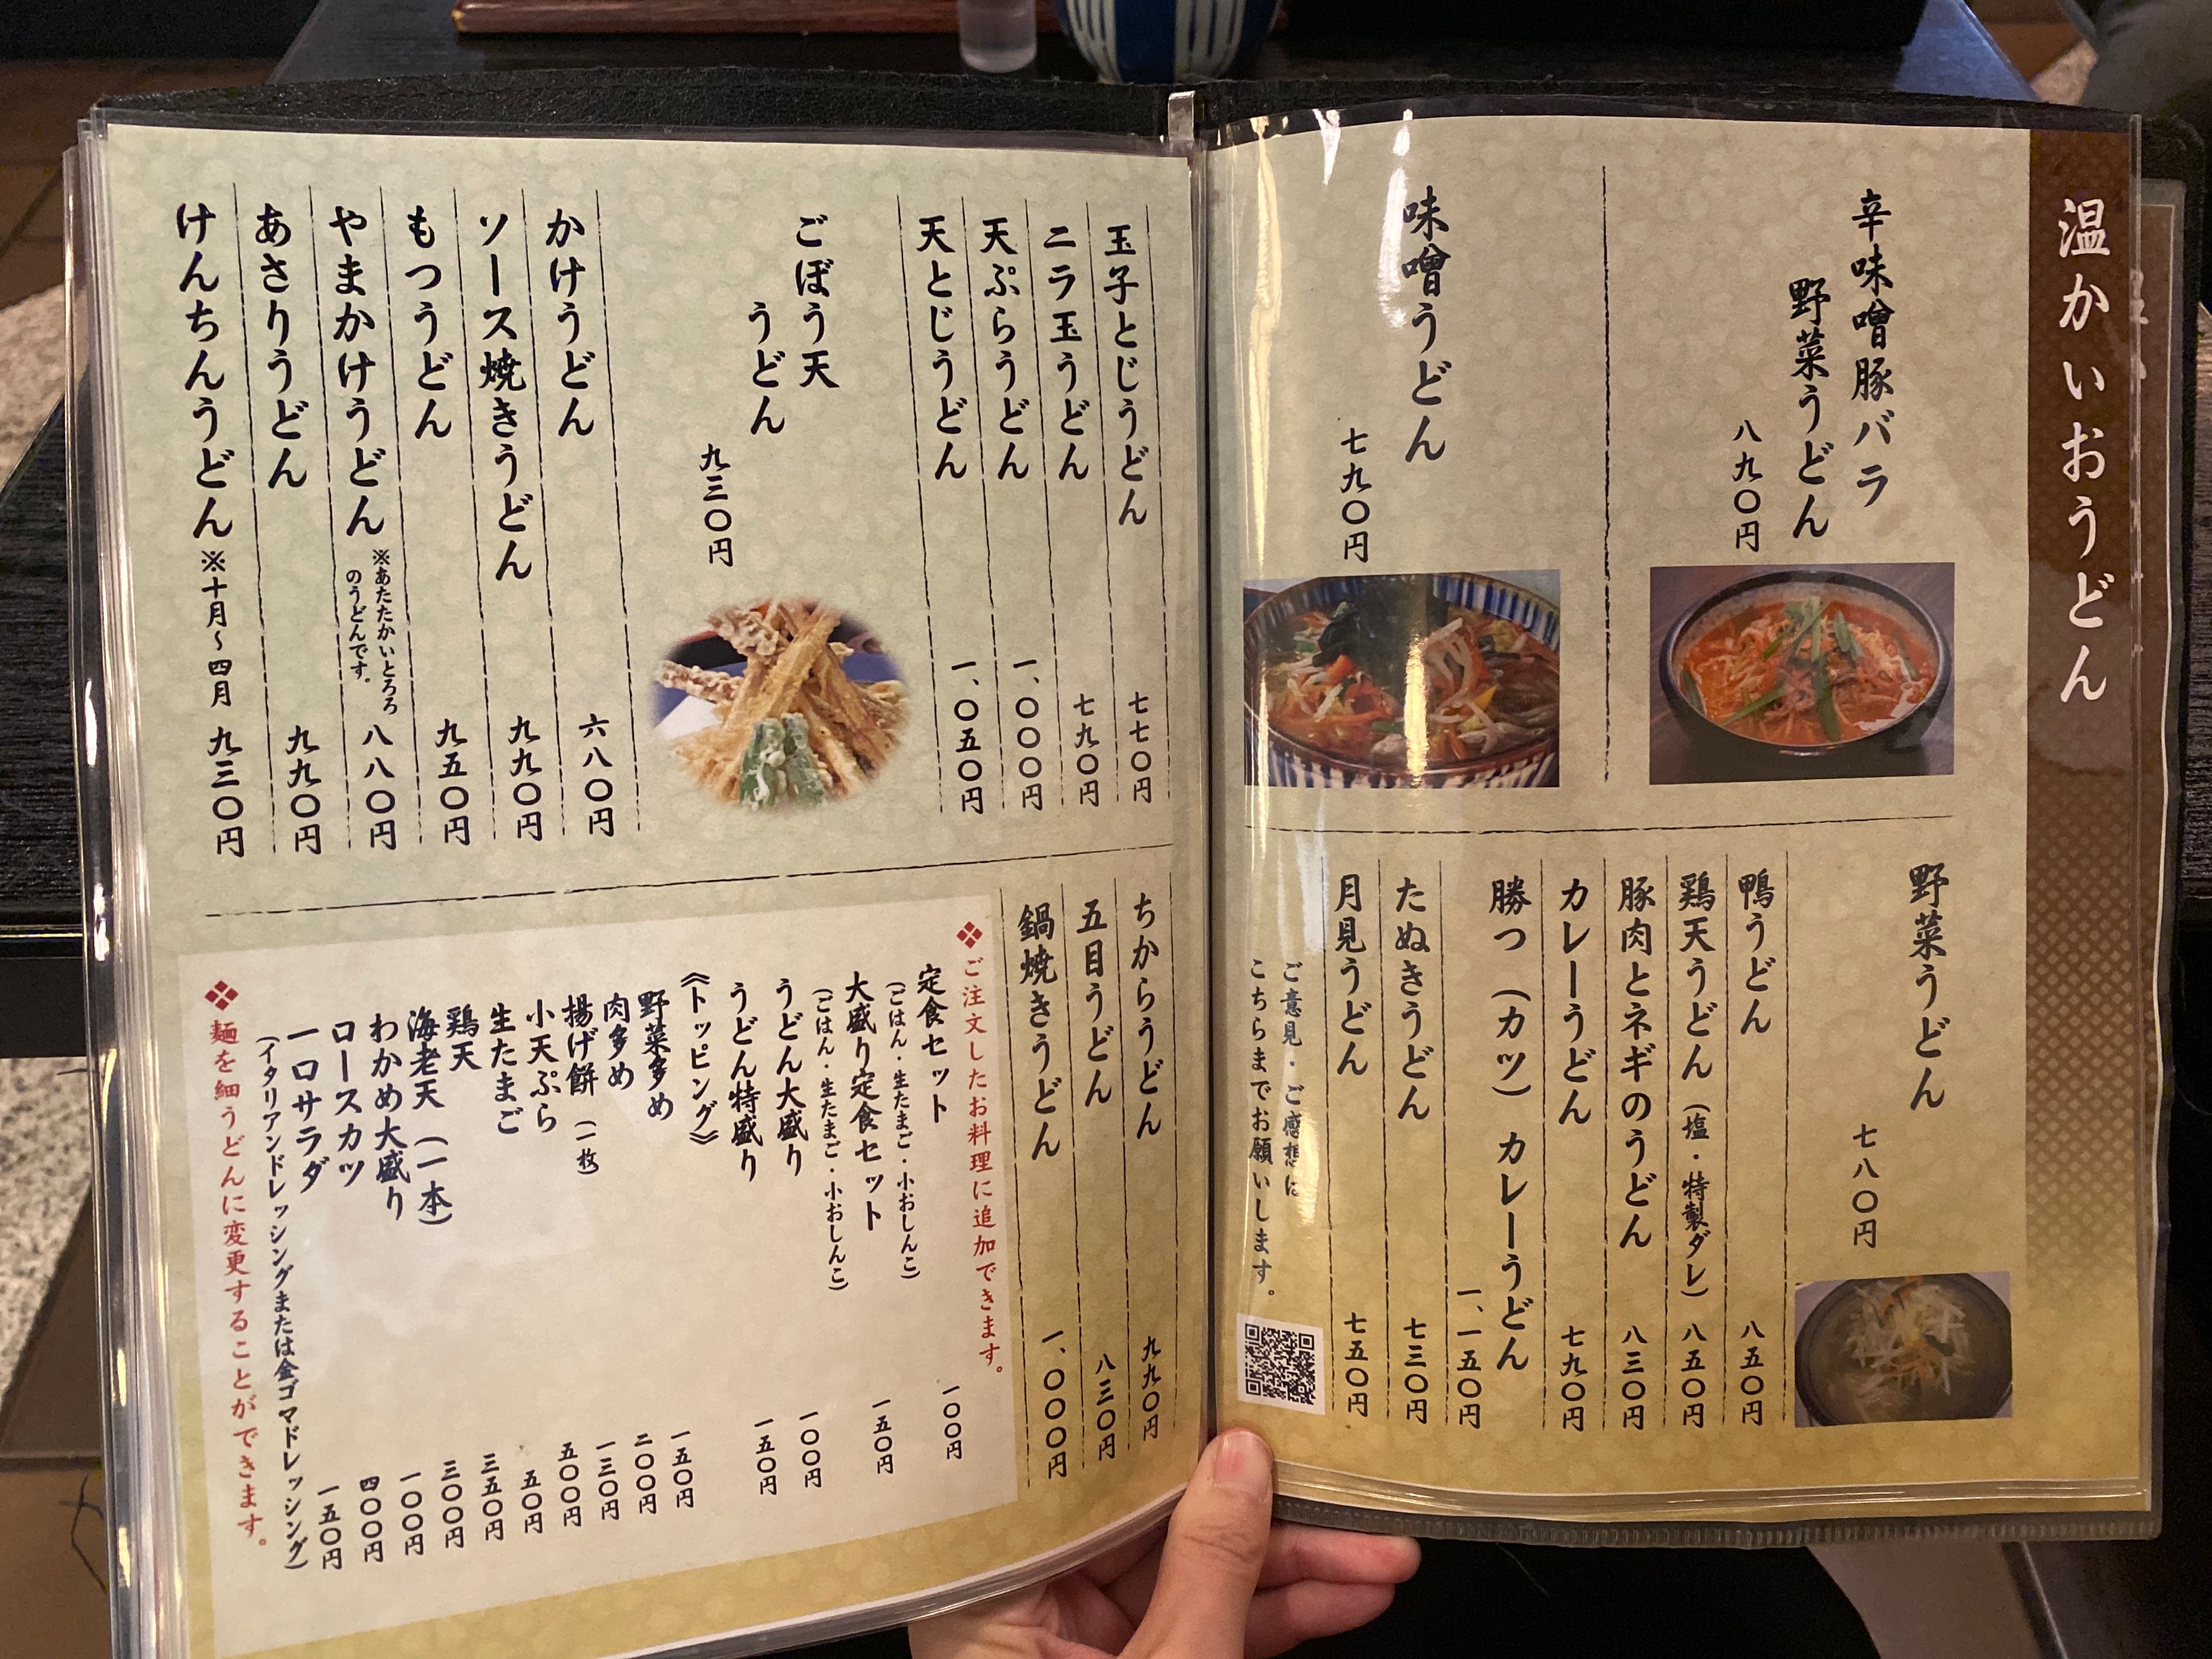 温かいおうどん
辛味噌豚バラ
野菜うどん
八九〇円
味噌うどん
七九〇円
野菜うどん
七八〇円
鴨うどん 八五〇円
鶏天うどん（塩・特製ダレ） 八五〇円
豚肉とネギのうどん 八三〇円
カレーうどん 七九〇円
勝つ（カツ）カレーうどん
一、一五〇円
たぬきうどん 七三〇円
月見うどん 七五〇円
ご意見・ご感想は
こちらまでお願いします。
玉子とじうどん 七七〇円
ニラ玉うどん 七九〇円
天ぷらうどん 一、〇〇〇円
天とじうどん 一、〇五〇円
ごぼう天
うどん
九三〇円
かけうどん 六八〇円
ソース焼きうどん 九九〇円
もつうどん 九五〇円
やまかけうどん ※あたたかいとろろ
のうどんです。 八八〇円
あさりうどん 九九〇円
けんちんうどん ※十月～四月 九三〇円
ちからうどん 九九〇円
五目うどん 八三〇円
鍋焼きうどん 一、〇〇〇円
❖ご注文したお料理に追加できます。
定食セット 一〇〇円
（ごはん・生たまご・小おしんこ）
大盛り定食セット 一五〇円
（ごはん・生たまご・小おしんこ）
うどん大盛り 一〇〇円
うどん特盛り 一五〇円
《トッピング》
野菜多め 一五〇円
肉多め 二〇〇円
揚げ餅（一枚） 一三〇円
小天ぷら 五〇〇円
生たまご 五〇円
鶏天 三五〇円
海老天（一本） 三〇〇円
わかめ大盛り 一〇〇円
ロースカツ 四〇〇円
一口サラダ 一五〇円
（イタリアンドレッシングまたは金ゴマドレッシング）
❖麺を細うどんに変更することができます。